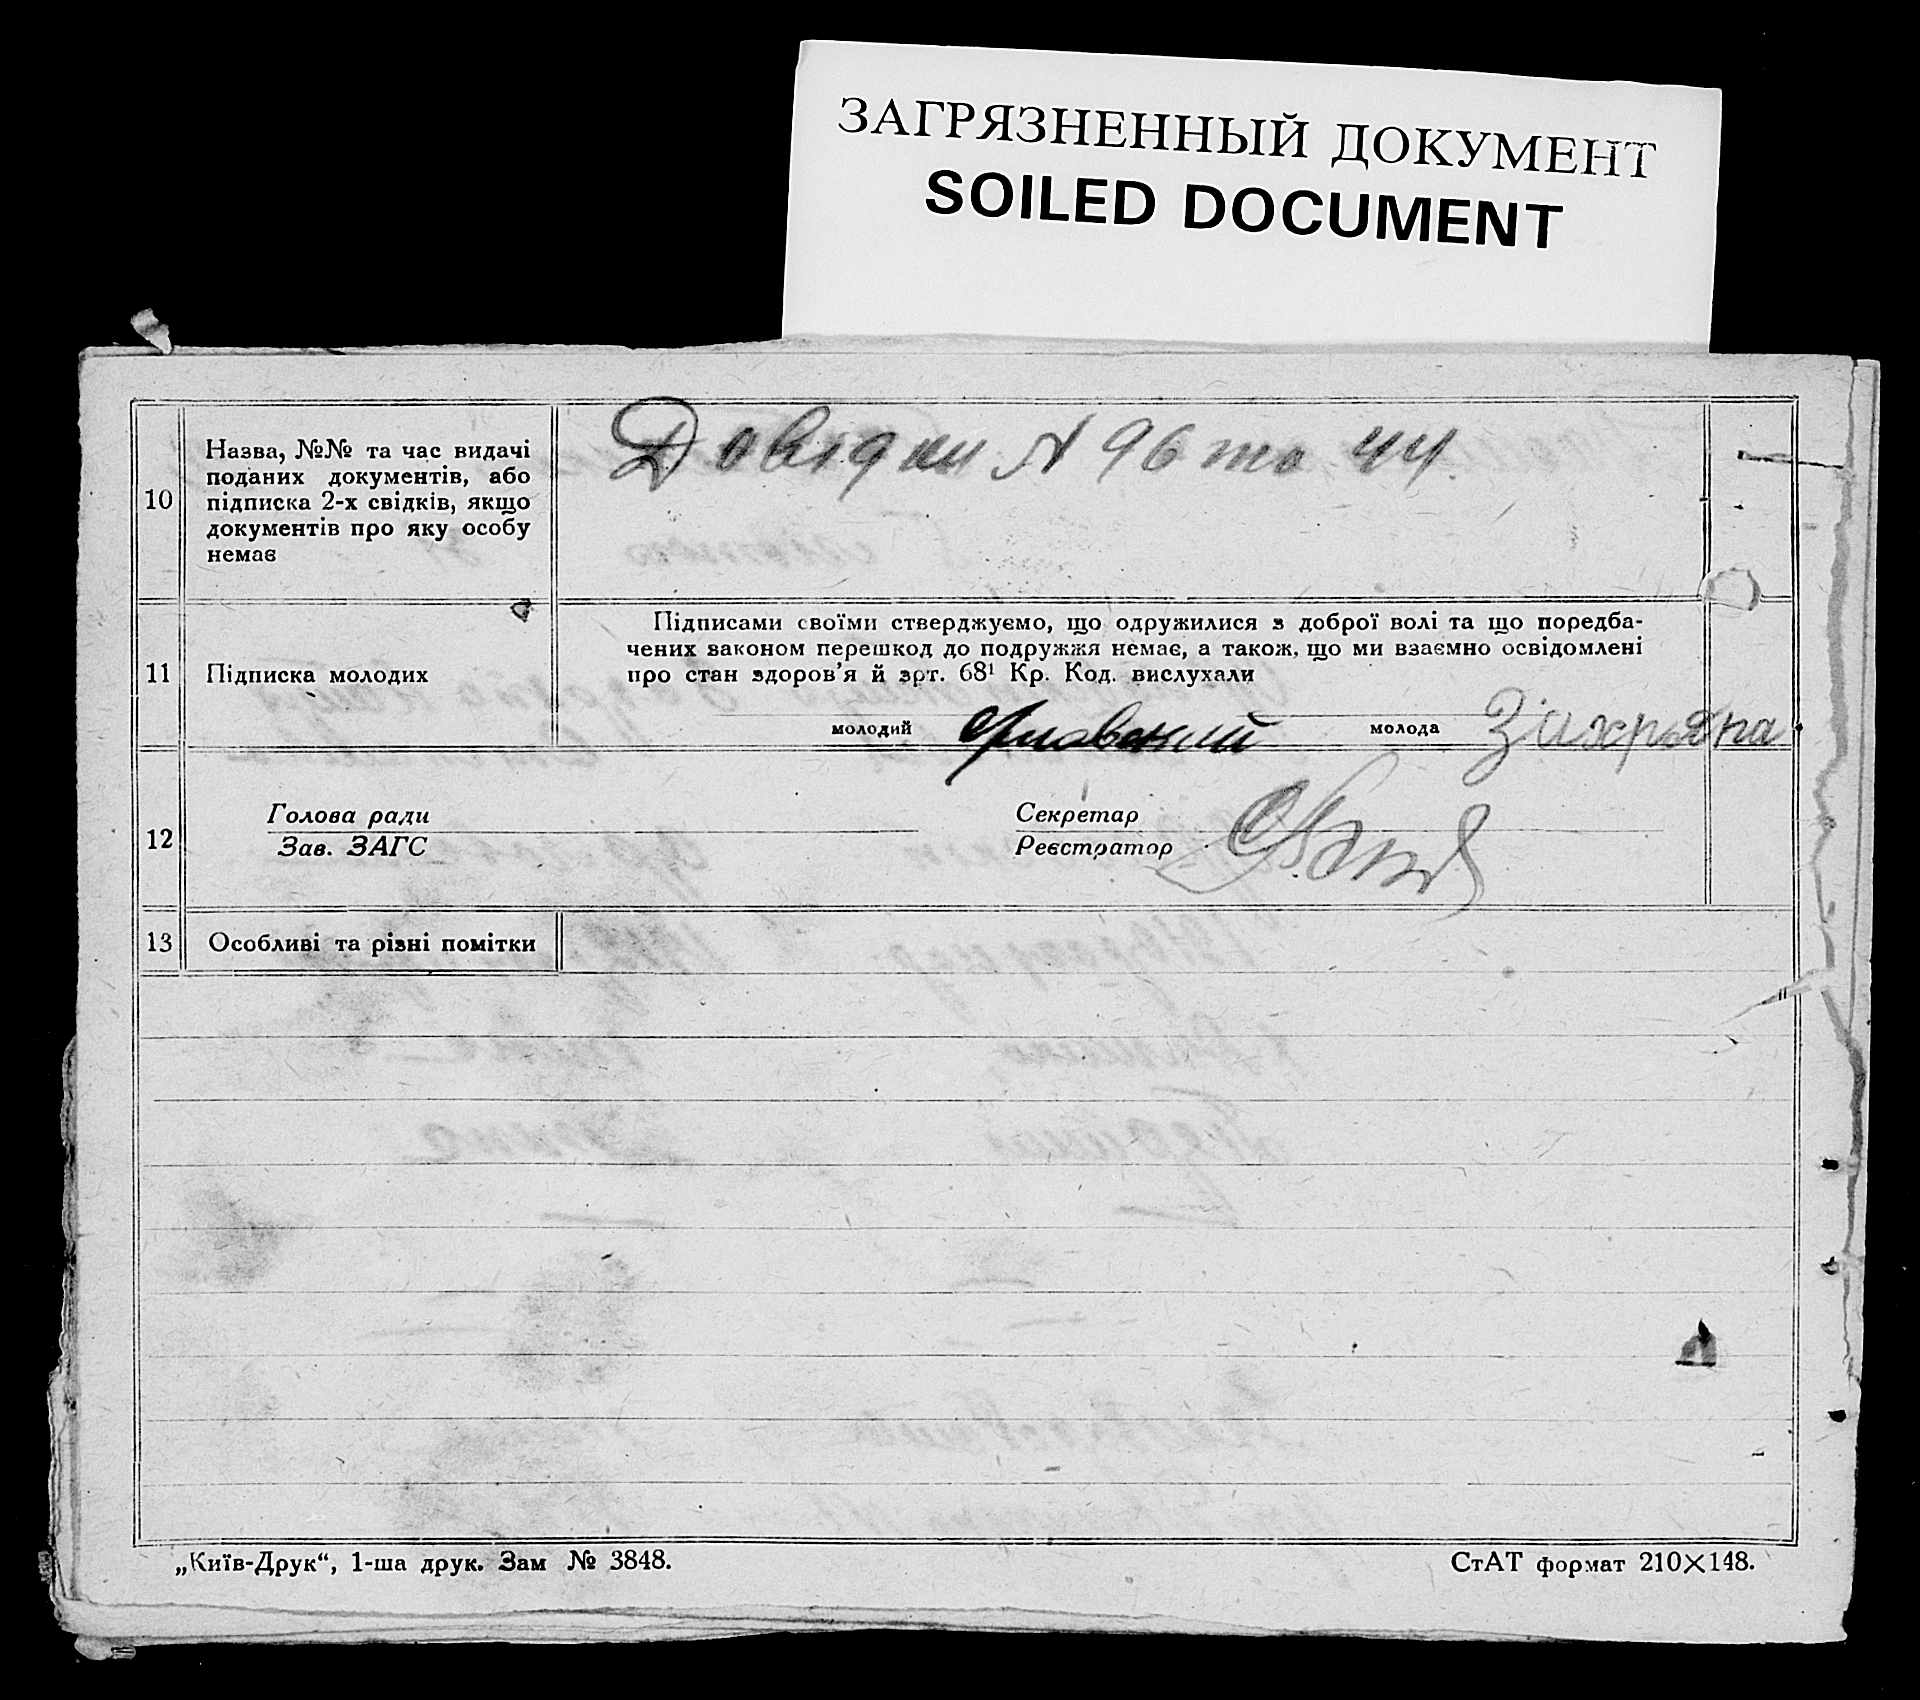 ЗАГРЯЗНЕННЫЙ ДОКУМЕНТ
SOILED DOCUMENT
10
Назва, №№ та час видачі
поданих документів, або
підписка 2-х свідків, якщо
документів про яку особу
немає
Довідки № 96 та 44.
11
Підписка молодих
Підписами своїми стверджуємо, що одружилися з доброї волі та що поредба-
чених законом перешкод до подружжя немає, а також, що ми взаємно освідомлені
про стан здоров'я й зрт. 68¹ Кр. Код. вислухали
молодий
молода
12
Голова ради
Зав. ЗАГС
Секретар
Реєстратор
13 Особливі та різні помітки
„Київ-Друк“, 1-ша друк. Зам № 3848.
СтАТ формат 210×148.